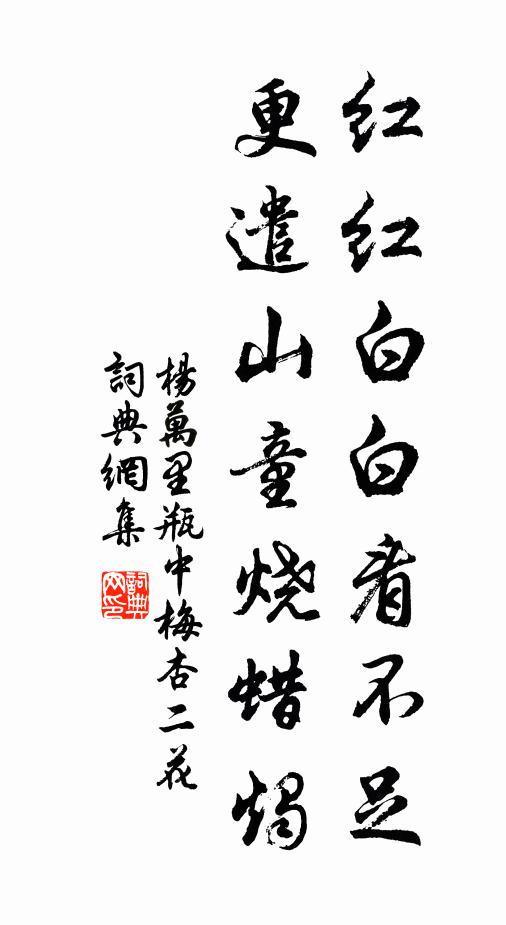 红红白白看不足
更遣山童烧蜡烛
楊萬里瓶中梅杏二花
詞典網集
詞典网印